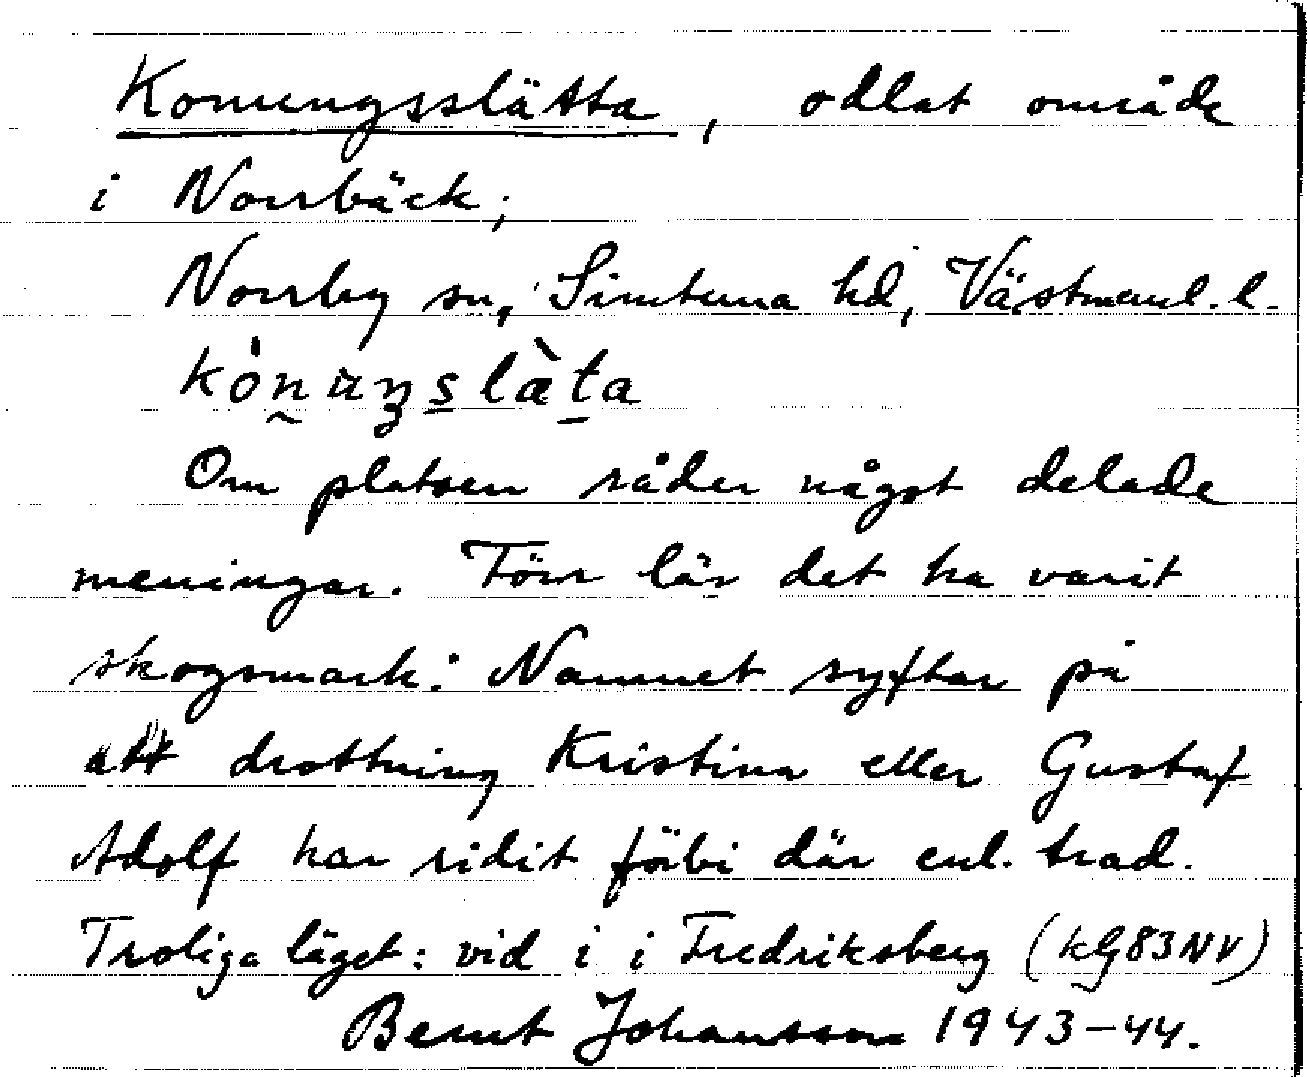 Konungsslätta, odlat område
i Norrbäck;
Norrby sn, Simtuna hd, Västmanl. l.
kònuŋslæ̀ta
Om platsen råder något delade
meningar. Förr lär det ha varit
skogsmark. Namnet syftar på
att drottning Kristina eller Gustaf
Adolf har ridit förbi där enl. trad.
Troliga läget: vid i i Fredriksberg (kG83NV)
Bernt Johansson 1943-44.